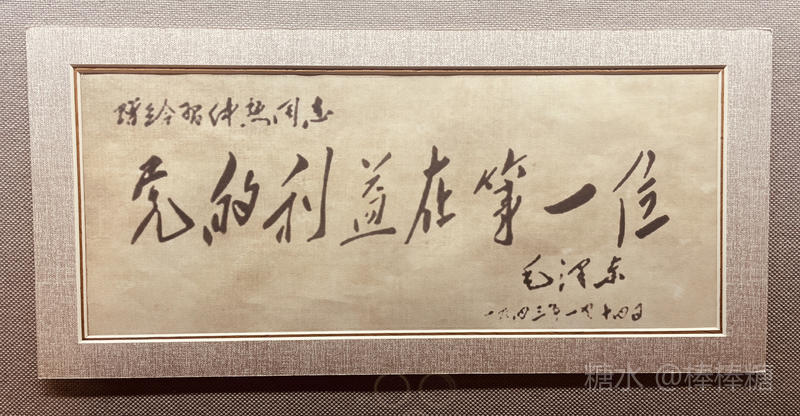 赠给习仲勋同志
党的利益在第一位
毛泽东
一九四三年一月十四日
糖水 @棒棒糖